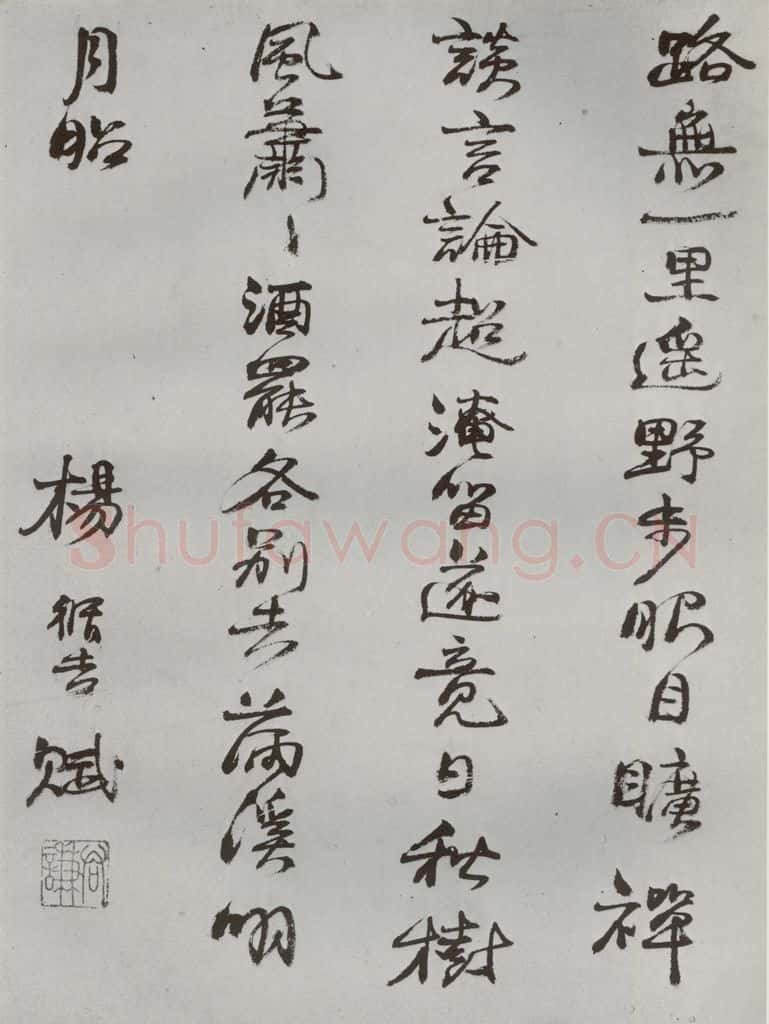 路無一里遥野步眼目曠禪
談言論超淹留遂竟日秋樹
風蕭〻酒罷各别去滿溪明
月昭
楊循吉賦
君謙
Shufawang.CN